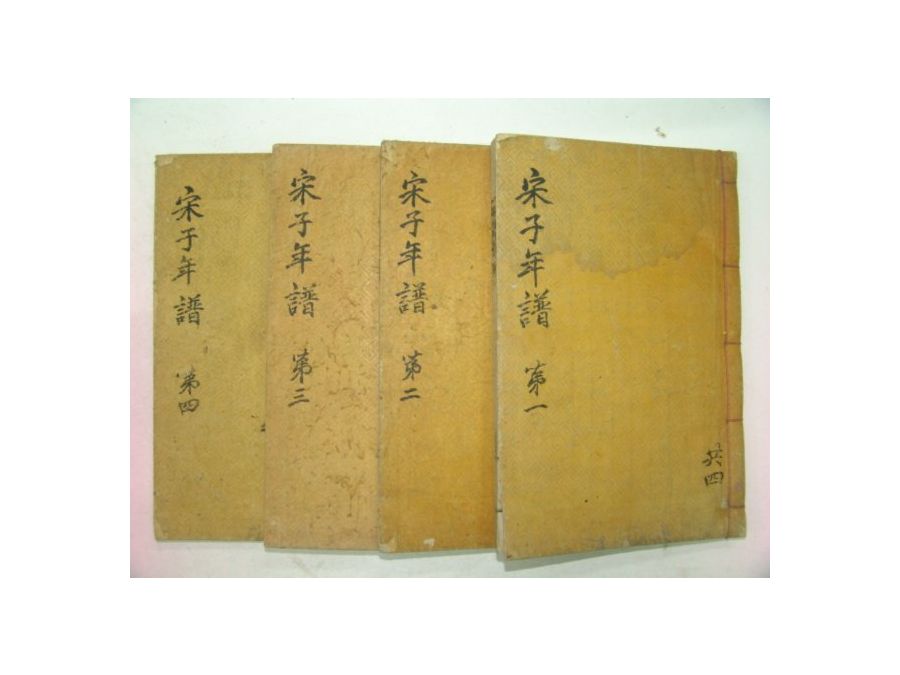 宋子年譜 第一
共四
宋子年譜 第二
宋子年譜 第三
宋子年譜 第四